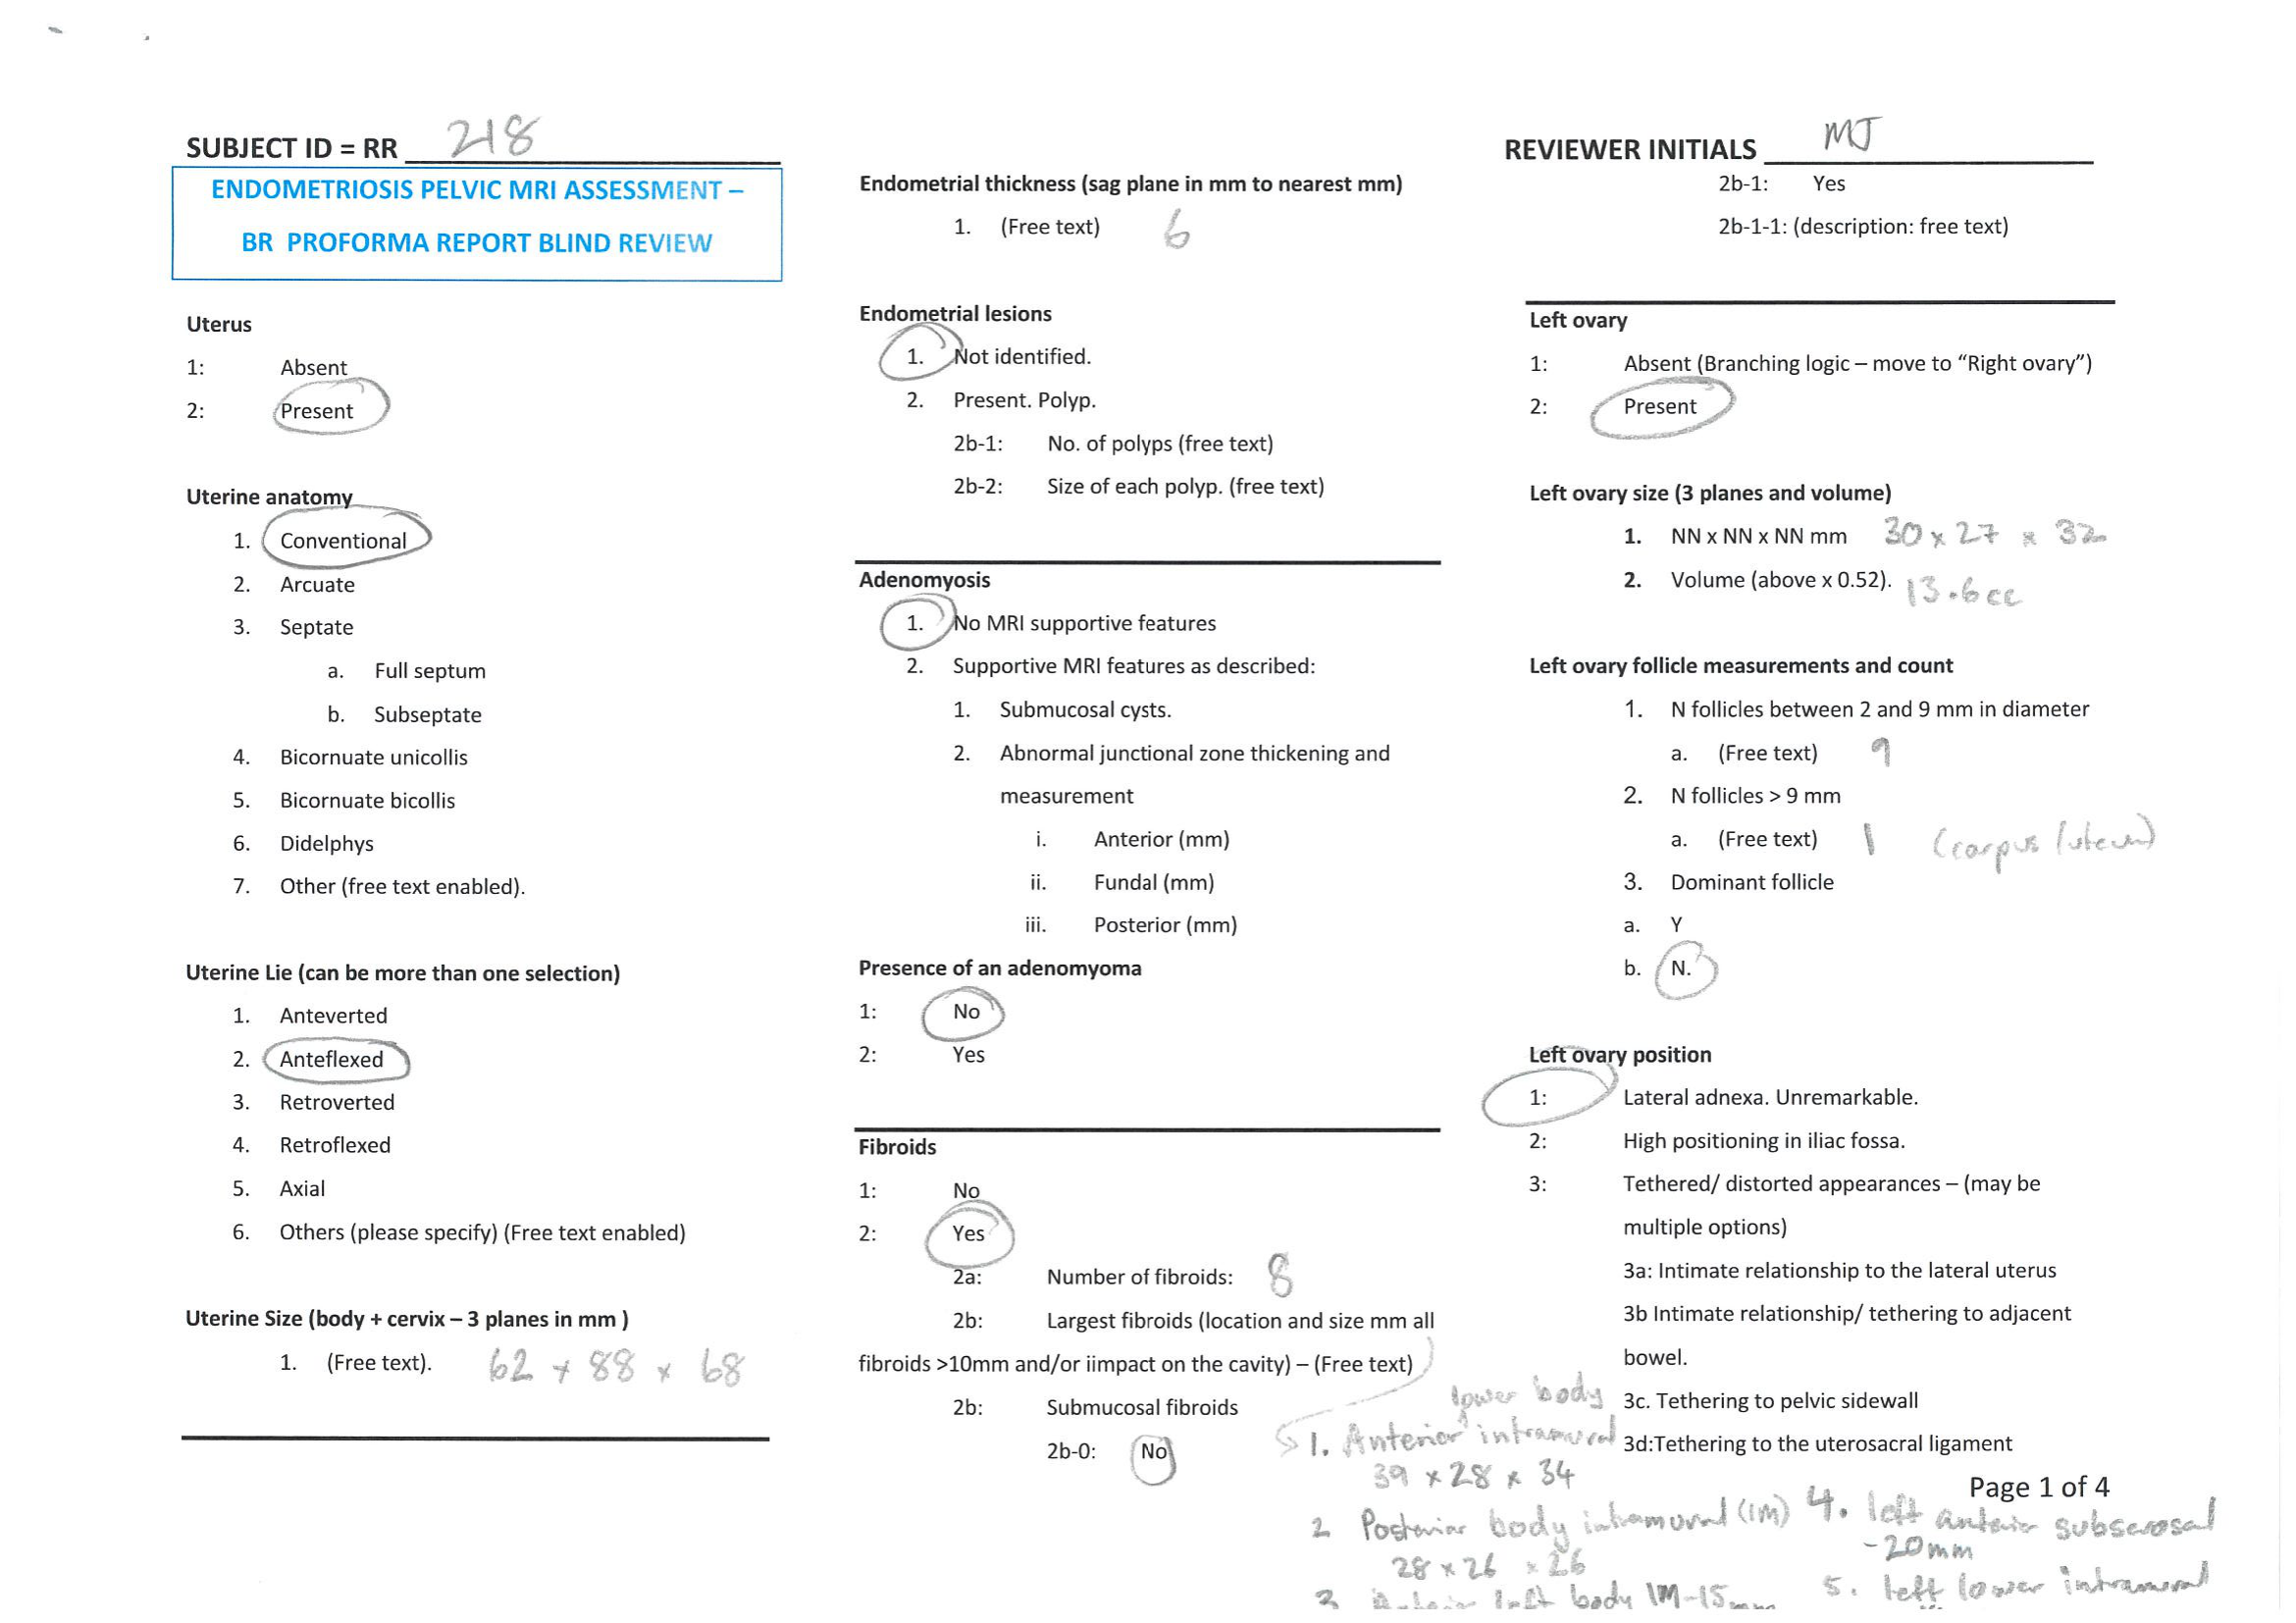 SUBJECT ID = RR 218
ENDOMETRIOSIS PELVIC MRI ASSESSMENT –
BR PROFORMA REPORT BLIND REVIEW
Uterus
1: Absent
2: Present
Uterine anatomy
1. Conventional
2. Arcuate
3. Septate
a. Full septum
b. Subseptate
4. Bicornuate unicollis
5. Bicornuate bicollis
6. Didelphys
7. Other (free text enabled).
Uterine Lie (can be more than one selection)
1. Anteverted
2. Anteflexed
3. Retroverted
4. Retroflexed
5. Axial
6. Others (please specify) (Free text enabled)
Uterine Size (body + cervix – 3 planes in mm )
1. (Free text). 62 x 88 x 68
Endometrial thickness (sag plane in mm to nearest mm)
1. (Free text) 6
Endometrial lesions
1. Not identified.
2. Present. Polyp.
2b-1: No. of polyps (free text)
2b-2: Size of each polyp. (free text)
Adenomyosis
1. No MRI supportive features
2. Supportive MRI features as described:
1. Submucosal cysts.
2. Abnormal junctional zone thickening and
measurement
i. Anterior (mm)
ii. Fundal (mm)
iii. Posterior (mm)
Presence of an adenomyoma
1: No
2: Yes
Fibroids
1: No
2: Yes
2a: Number of fibroids: 8
2b: Largest fibroids (location and size mm all
fibroids >10mm and/or iimpact on the cavity) – (Free text)
2b: Submucosal fibroids
2b-0: No
lower body
1. Anterior intramural
39 x 28 x 34
2 Posterior body intramural (IM)
28 x 26 x 26
3 Anterior left body IM-15mm
4. left anterior subserosal
-20mm
5. left lower intramural
REVIEWER INITIALS MJ
2b-1: Yes
2b-1-1: (description: free text)
Left ovary
1: Absent (Branching logic – move to “Right ovary”)
2: Present
Left ovary size (3 planes and volume)
1. NN x NN x NN mm 30 x 27 x 32
2. Volume (above x 0.52). 13.6cc
Left ovary follicle measurements and count
1. N follicles between 2 and 9 mm in diameter
a. (Free text) 9
2. N follicles > 9 mm
a. (Free text) 1 (corpus luteum)
3. Dominant follicle
a. Y
b. N.
Left ovary position
1: Lateral adnexa. Unremarkable.
2: High positioning in iliac fossa.
3: Tethered/ distorted appearances – (may be
multiple options)
3a: Intimate relationship to the lateral uterus
3b Intimate relationship/ tethering to adjacent
bowel.
3c. Tethering to pelvic sidewall
3d:Tethering to the uterosacral ligament
Page 1 of 4